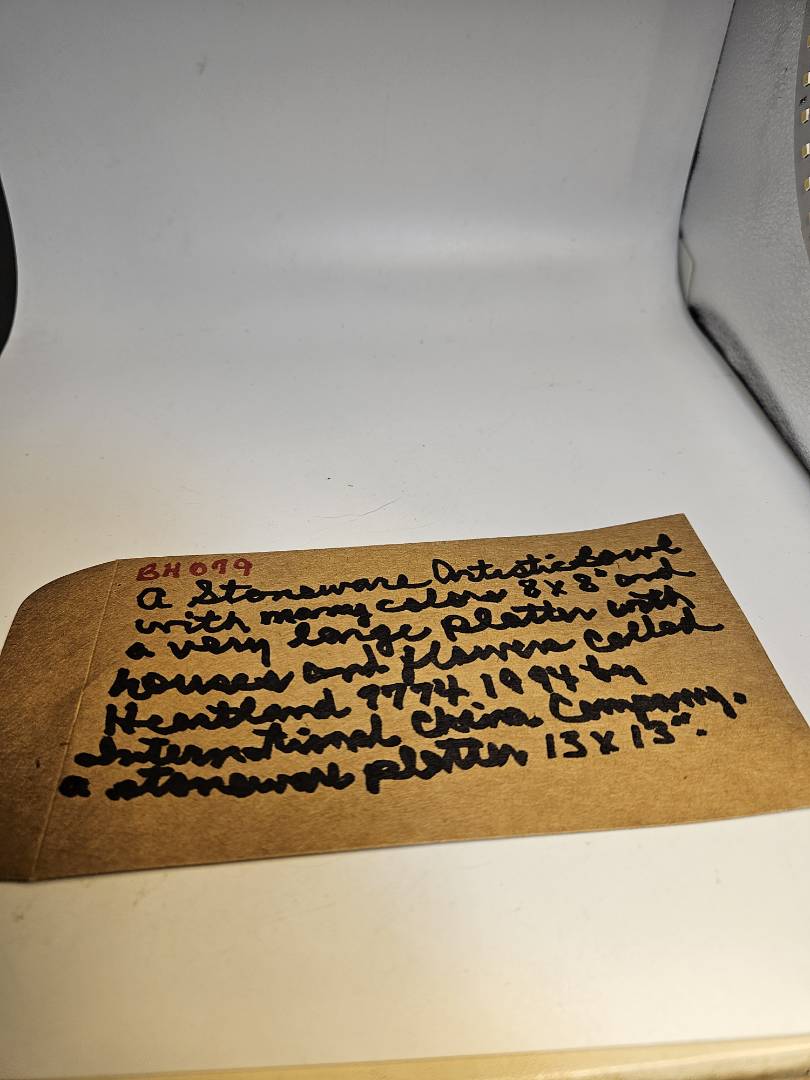 BH 099
A Stoneware Artistic bowl
with many colors 8 x 8" and
a very large platter with
houses and flowers called
Heartland 7774 1994 by
International China Company.
a stoneware platter 13 x 13".